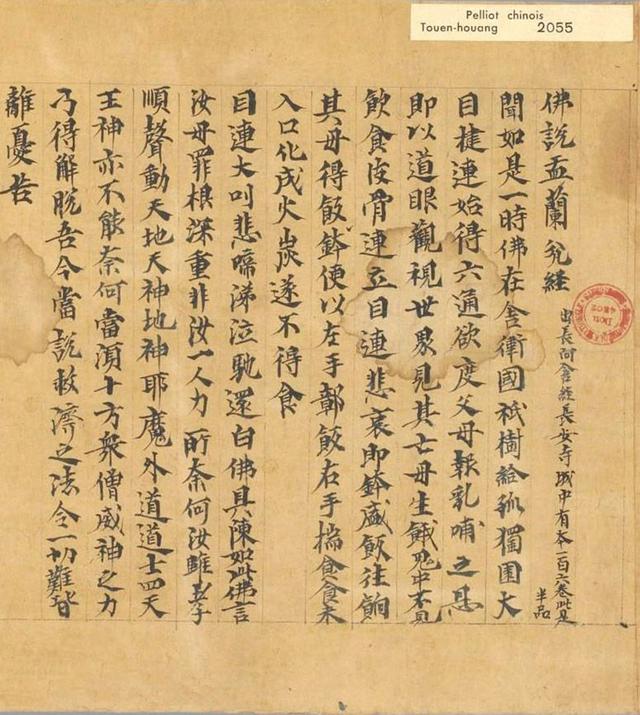 Pelliot chinois
Touen-houang 2055
佛說盂蘭盆經
出長阿含經長安寺城中有本一百六卷此是
半品
聞如是一時佛在舍衛國祇樹給孤獨園大
目揵連始得六通欲度父母報乳哺之恩
即以道眼觀視世界見其亡母生餓鬼中不見
飲食皮骨連立目連悲哀即鉢盛飯往餉
其母得飯鉢便以左手鄣飯右手揣食食未
入口化成火炭遂不得食
目連大叫悲啼涕泣馳還白佛具陳如此佛言
汝母罪根深重非汝一人力所奈何汝雖孝
順聲動天地天神地神耶魔外道道士四天
王神亦不能奈何當須十方衆僧威神之力
乃得解脫吾今當說救濟之法令一切難皆
離憂苦